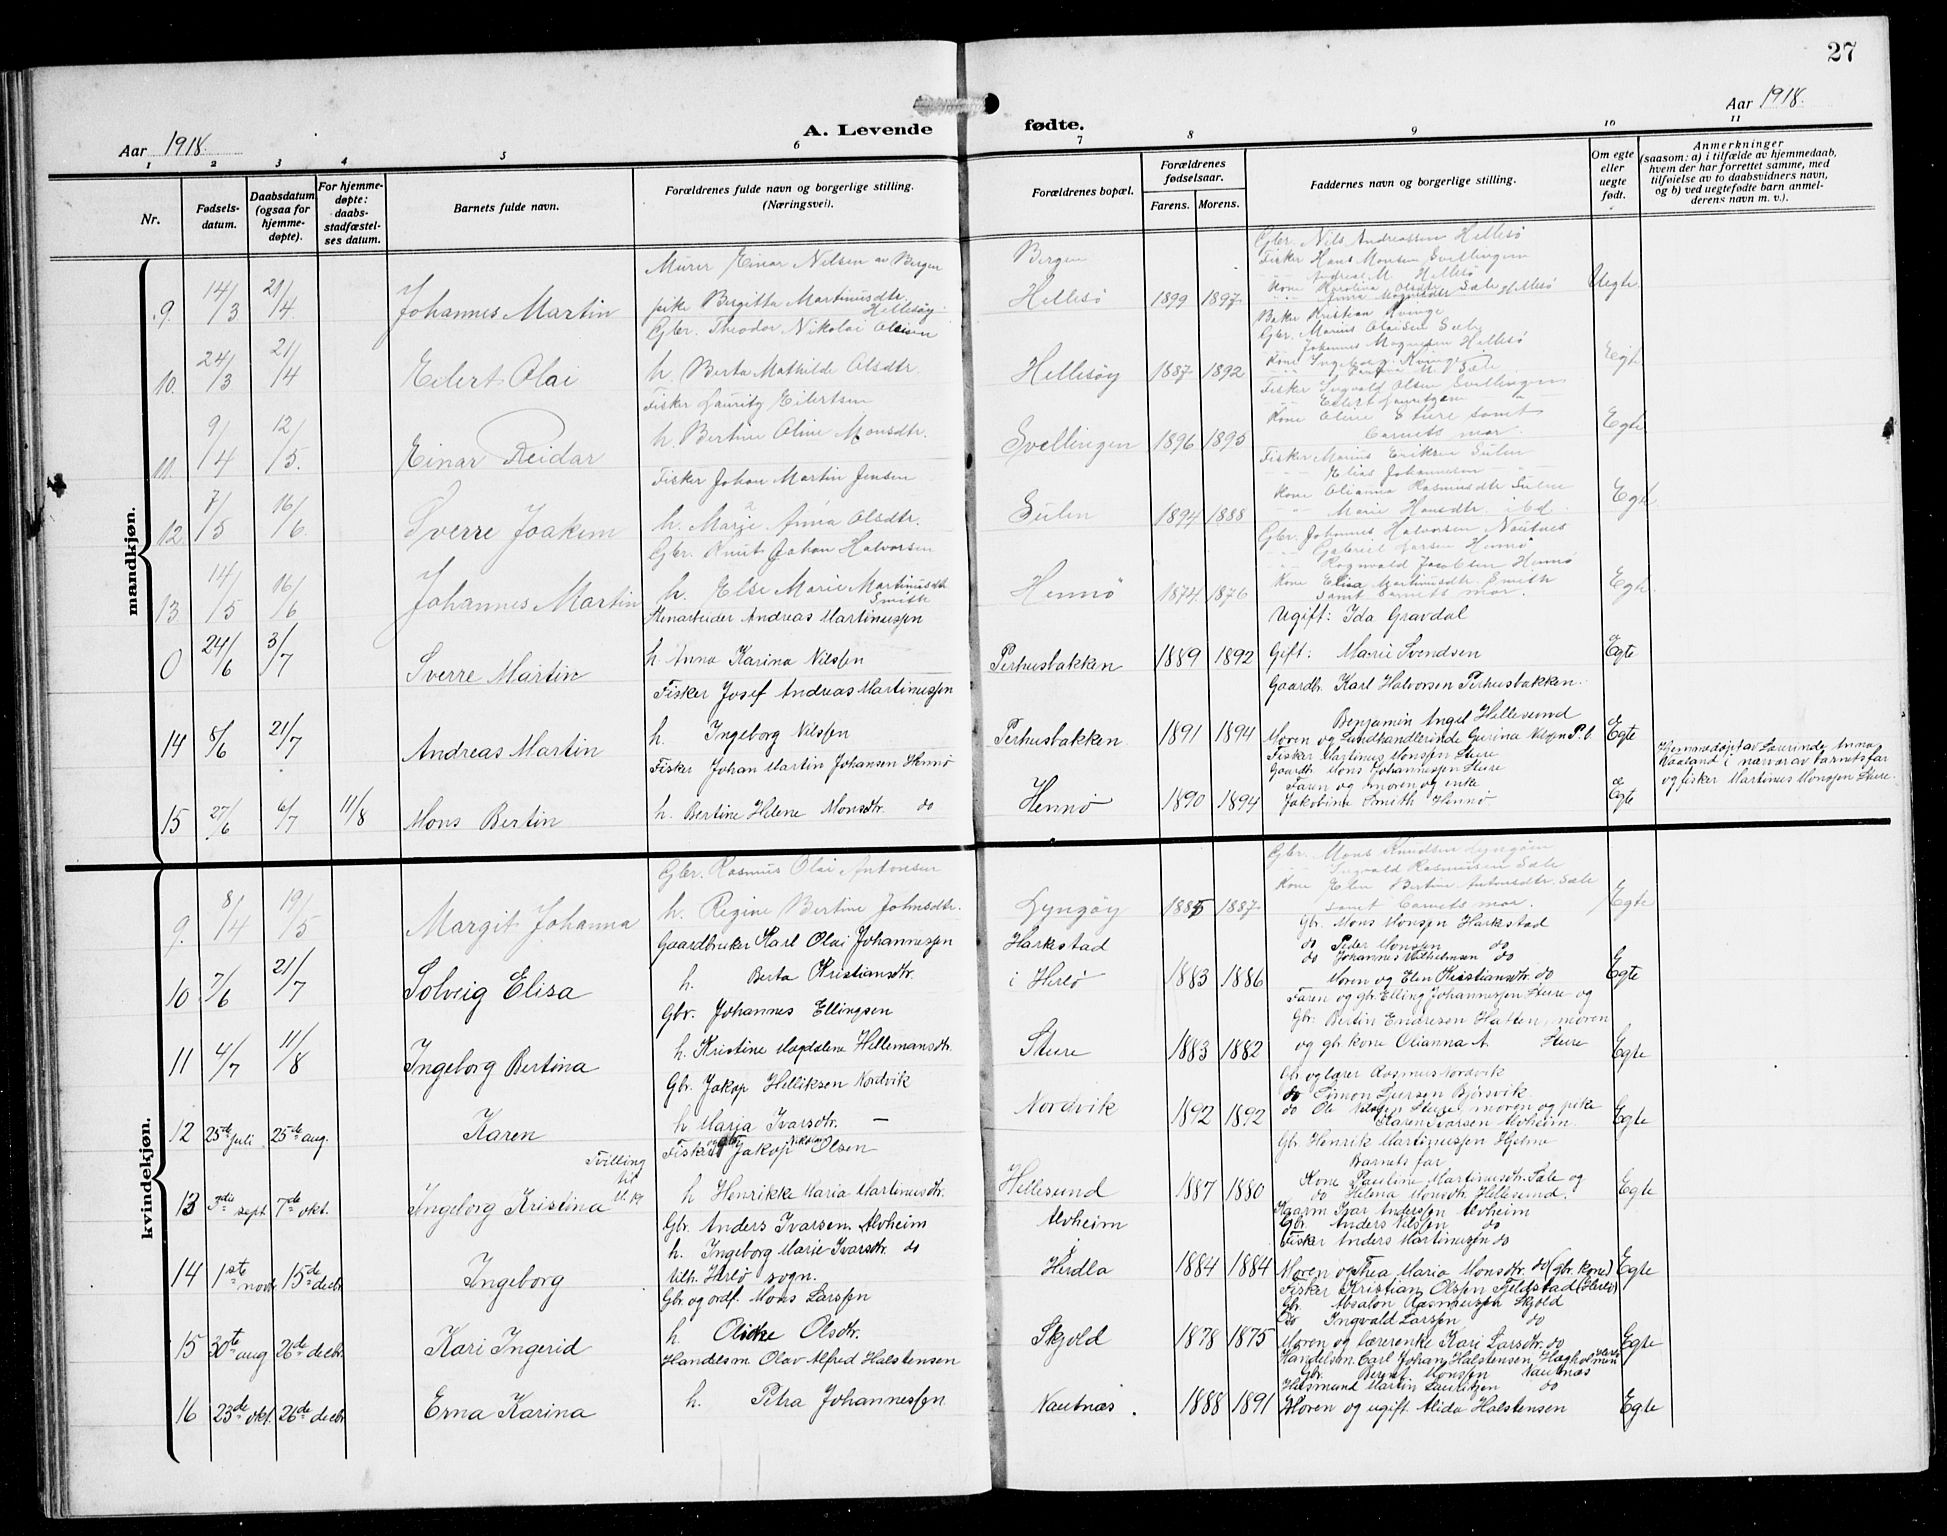 27
Aar 1918.
Aar 1918.
A. Levende fødte.
1 2 3 4 5 6 7 8 9 10 11
Nr.
Fødsels-
datum.
Daabsdatum
(ogsaa for
hjemme-
døpte).
For hjemme-
døpte:
daabs-
stadfæstel-
ses datum.
Barnets fulde navn.
Forældrenes fulde navn og borgerlige stilling.
(Næringsvei).
Forældrenes bopæl.
Forældrenes
fødselsaar.
Farens. Morens.
Faddernes navn og borgerlige stilling.
Om egte
eller
uegte
født.
Anmerkninger
(saasom: a) i tilfælde av hjemmedaab,
hvem der har forrettet samme, med
tilføielse av to daabsvidners navn,
og b) ved uegtefødte barn anmel-
derens navn m. v.).
mandkjøn.
9. 14/3 21/4. Johannes Martin
Murer Einar Nilsen av Bergen
pike Birgitta Martinusdtr.
Hellesøy
Bergen
Hellesø 1899 1897
Gbr. Nils Andreassen Hellesø
Fisker Hans Monsen Svellingen
Uegte.
10. 24/3 21/4 Eilert Olai
Gbr. Theodor Nikolai Olsen
h. Berta Mathilde Olsdtr
Hellesøy 1887 1892
Baker Kristian Kvinge
Gbr. Marius Olaisen Sæle
Johannes Magnussen Hellesø
Kone Ingeborg Kvinge
Egte
11. 9/4 12/5. Einar Reidar
Fisker Lauritz Eilertsen
h. Bertine Oline Monsdtr.
Svellingen 1896 1895
Fisker Ingvald Olsen Svellingen
Eilert Lauritzen
Kone Oline Sture samt
barnets mor.
Egte
12 7/5 16/6 Sverre Joakim
Fisker Johan Martin Jensen
h. Marie Anna Olsdtr.
Sulen 1894 1888
Fisker Marius Eriksen Sulen
Elias Johannesen
Kone Olianna Rasmusdtr Sulen
Marie Hansdtr. ibd.
Egte
13 14/5 16/6 Johannes Martin
Gbr. Knut Johan Halvorsen
h. Else Marie Martinusdtr
Smith
Hennø 1874 1876
Gbr. Johannes Halvorsen Nautnes
Gabriel Larsen Hennø
Rognvald Jacobsen Hennø
Kone Elisa Martinusdtr. Smith
samt barnets mor.
Egte
0 24/6 3/7 Sverre Martin
Stenarbeider Andreas Martinussen
h. Anna Karina Nilssen
Perhusbakken 1889 1892
Ugift: Ida Gravdal
Gift: Marie Svendsen
Gaardbr. Karl Halvorsen Perhusbakken.
Egte
14 8/6 21/7 Andreas Martin
Fisker Josef Andreas Martinussen
h. Ingeborg Nilssen
Perhusbakken 1891 1894
Benjamin Angel Hellesund
Moren og Landhandlerinde Gurina Nilsen P.b.
Egte
15 27/6 6/7 11/8 Mons Bertin
Fisker Johan Martin Johansen Hennø
h. Bertine Helene Monsdtr. do
Hennø 1890 1894
Fisker Martinus Monssen Sture
Gaardbr Mons Johannessen Sture
Faren og moren og enke
Jakobine Smith Hennø
Egte
Hjemmedøpt av Lærerinde Anna
Vaaland i nærvær av barnets far
og fisker Martinus Monssen Sture.
kvindekjøn.
9. 8/4 19/5 Margit Johanna
Gbr. Rasmus Olai Antonsen
h. Regine Bertine Johnsdtr.
Lyngøy 1885 1887
Gbr. Mons Knudsen Lyngøen
Ingvald Rasmussen Sæle
Kone Elen Bertine Antonsdtr. Sæle
samt barnets mor.
Egte
10 7/6 21/7 Solveig Elisa
Gaardbruker Karl Olai Johannessen
h. Berta Kristiansdtr.
Harkestad
i Herlø 1883 1886
Gbr. Mons Monssen Harkestad
do Peder Monssen do
do Johannes Vilhelmsen do
Moren og Elen Kristiansdtr. do
Egte
11 4/7 11/8 Ingeborg Bertina
Gbr. Johannes Ellingsen
h. Kristine Magdalene Hellemansdtr.
Sture 1883 1882
Faren og gbr. Elling Johannessen Sture og
Gbr. Bertin Endresen Hatten, moren
og gbr. kone Olianna A Sture
Egte
12 25de juli 25de aug. Karen
Gbr. Jakop Helliksen Nordvik
h Marja Ivarsdtr. —
Nordvik 1892 1892
Gbr og lærer Rasmus Nordvik
do Simon Sjursen Bjørsvik
do Ole Nilssen Sture, moren og pike
Karen Ivarsen Alvheim
Egte
13 3die sept 7de okt. Ingeborg Kristina
Tvilling
til
M. 19
Fisker og gbr Jakop Nikolai Olsen
h Henrikke Maria Martinusdtr.
Hellesund 1887 1880
Gbr Henrik Martinussen Hjelmo
Barnets far
Kone Pauline Martinusdtr. Sæle og
do Helena Monsdtr. Hellesund.
Egte
14 1ste novbr 15de decbr. Ingeborg
Gbr. Anders Ivarsen Alvheim
h. Ingeborg Marie Ivarsdtr. do
tilh. Herlø sogn.
Alvheim
i
Herdla 1884 1884
Kaarm Ivar Anderssen Alvheim
Gbr. Anders Nilssen do
Fisker Anders Martinussen do
Moren og Thea Maria Monsdtr. do (gbr. kone)
Egte
15 30te aug 26de decbr. Kari Ingerid
Gbr. og ordf. Mons Larssen
h. Oline Olsdtr.
Skjold 1878 1875
Fisker Kristian Olssen Fjeldstad (Herlø)
Gbr. Absalon Rasmussen Skjold
Do Ingvald Larssen do
Moren og lærerenke Kari Larsdtr. do
Egte
16 23de okt. 26de decbr. Erna Karina
Handelsm. Olav Alfred Halstensen
h. Petra Johannessen
Nautnæs. 1888 1891
Handelsm. Carl Johan Halstensen, Hagholmen
Gbr. Bernt Monssen Nautnæs
Husmand Martin Lauritzen do
Moren og ugift Alida Halstensen
Egte